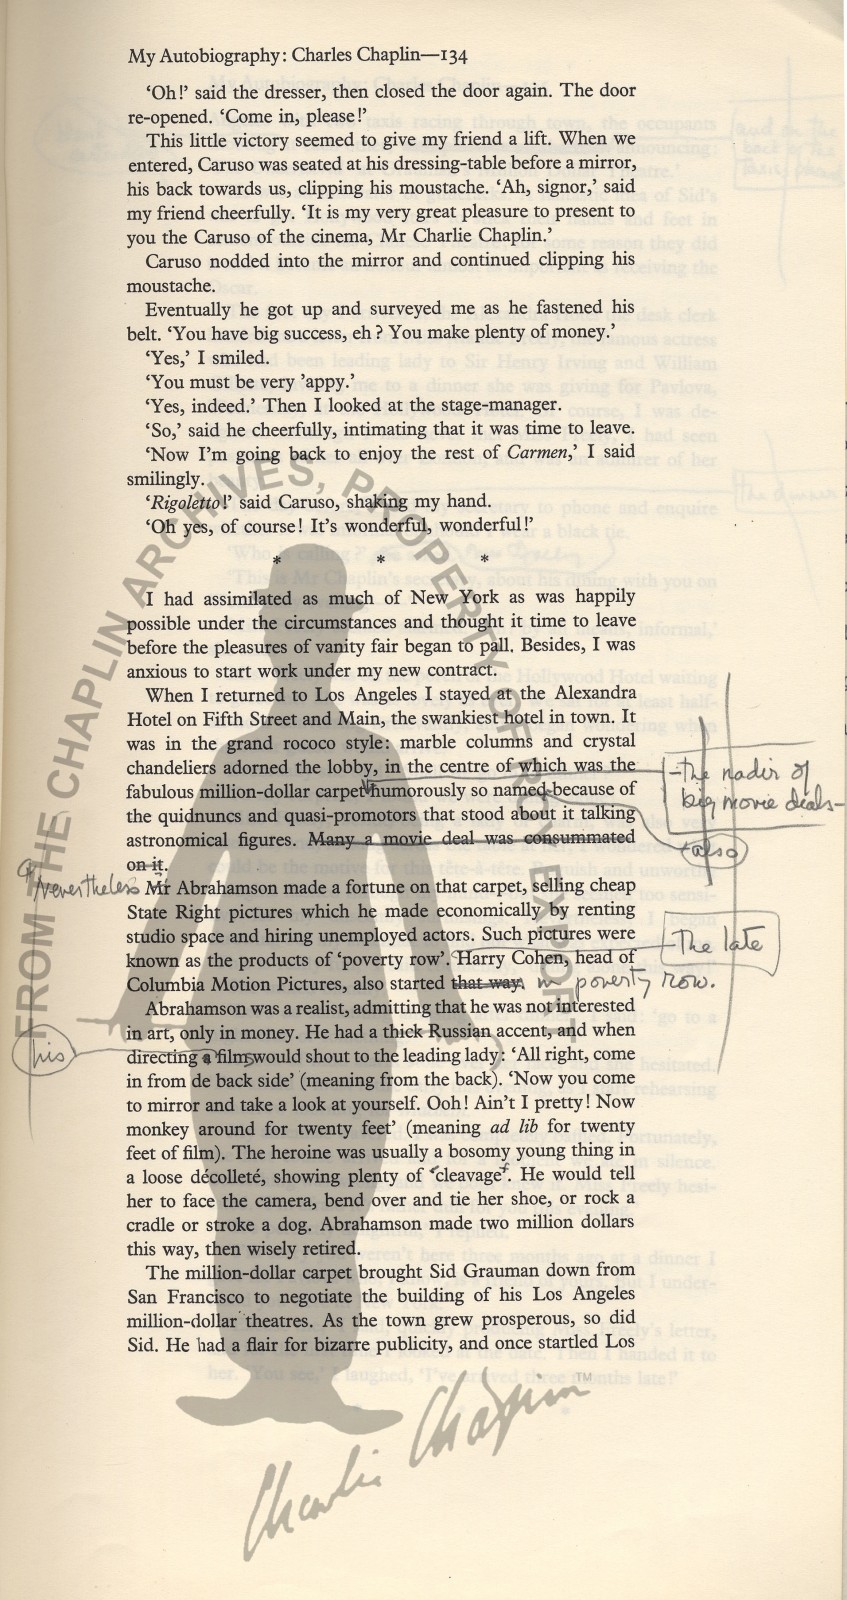 My Autobiography: Charles Chaplin—134
‘Oh!’ said the dresser, then closed the door again. The door
re-opened. ‘Come in, please!’
This little victory seemed to give my friend a lift. When we
entered, Caruso was seated at his dressing-table before a mirror,
his back towards us, clipping his moustache. ‘Ah, signor,’ said
my friend cheerfully. ‘It is my very great pleasure to present to
you the Caruso of the cinema, Mr Charlie Chaplin.’
Caruso nodded into the mirror and continued clipping his
moustache.
Eventually he got up and surveyed me as he fastened his
belt. ‘You have big success, eh? You make plenty of money.’
‘Yes,’ I smiled.
‘You must be very ’appy.’
‘Yes, indeed.’ Then I looked at the stage-manager.
‘So,’ said he cheerfully, intimating that it was time to leave.
‘Now I’m going back to enjoy the rest of Carmen,’ I said
smilingly.
‘Rigoletto!’ said Caruso, shaking my hand.
‘Oh yes, of course! It’s wonderful, wonderful!’
* * *
I had assimilated as much of New York as was happily
possible under the circumstances and thought it time to leave
before the pleasures of vanity fair began to pall. Besides, I was
anxious to start work under my new contract.
When I returned to Los Angeles I stayed at the Alexandra
Hotel on Fifth Street and Main, the swankiest hotel in town. It
was in the grand rococo style: marble columns and crystal
chandeliers adorned the lobby, in the centre of which was the
fabulous million-dollar carpet humorously so named because of
the quidnuncs and quasi-promotors that stood about it talking
astronomical figures. Many a movie deal was consummated
on it.
–the nadir of
big movie deals–
also
Nevertheless
Mr Abrahamson made a fortune on that carpet, selling cheap
State Right pictures which he made economically by renting
studio space and hiring unemployed actors. Such pictures were
known as the products of ‘poverty row’. Harry Cohen, head of
The late
Columbia Motion Pictures, also started that way. in poverty row.
Abrahamson was a realist, admitting that he was not interested
in art, only in money. He had a thick Russian accent, and when
his
directing a film, would shout to the leading lady: ‘All right, come
in from de back side’ (meaning from the back). ‘Now you come
to mirror and take a look at yourself. Ooh! Ain’t I pretty! Now
monkey around for twenty feet’ (meaning ad lib for twenty
feet of film). The heroine was usually a bosomy young thing in
a loose décolleté, showing plenty of ‘cleavage’. He would tell
her to face the camera, bend over and tie her shoe, or rock a
cradle or stroke a dog. Abrahamson made two million dollars
this way, then wisely retired.
The million-dollar carpet brought Sid Grauman down from
San Francisco to negotiate the building of his Los Angeles
million-dollar theatres. As the town grew prosperous, so did
Sid. He had a flair for bizarre publicity, and once startled Los
FROM THE CHAPLIN ARCHIVES, PROPERTY OF ROY EXPORT
Charlie Chaplin™